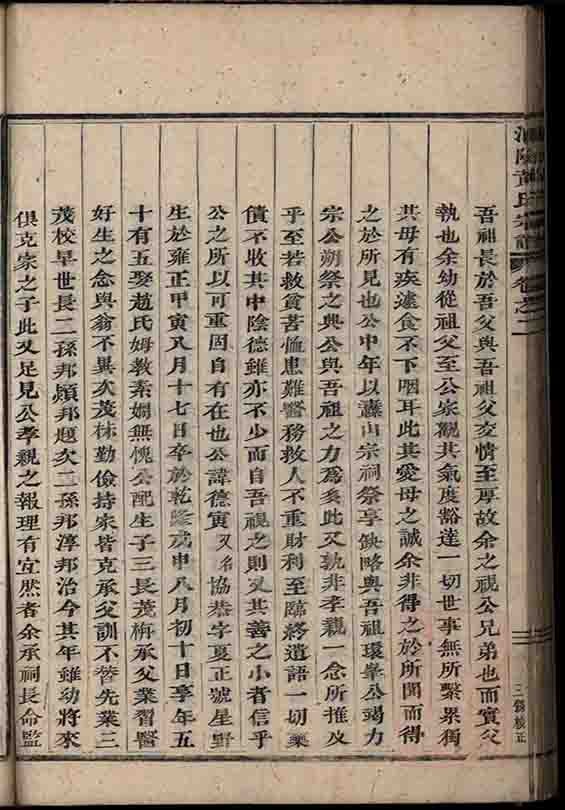 黃氏宗譜 卷之二
吾祖長於吾父與吾祖父交情至厚故余之視公兄弟也而實父
執也余幼從祖父至公家觀其氣度豁達一切世事無所繫累獨
其母有疾遽食不下咽耳此其愛母之誠余非得之於所聞而得
之於所見也公中年以靈山宗祠祭享缺略與吾祖環峯公竭力
宗公朔祭之典公與吾祖之力為多此又孰非孝親一念所推及
乎至若救貧苦恤患難醫務救人不重財利至臨終遺語一切藥
債不收其中陰德雖亦不少而自吾視之則又其善之小者信乎
公之所以可重固自有在也公諱德寅又名協恭字夏正號星野
生於雍正甲寅八月十七日卒於乾隆戊申八月初十日享年五
十有五娶趙氏姆教素嫻無愧公配生子三長茂梅承父業習醫
好生之念與翁不異次茂林勤儉持家皆克承父訓不替先業三
茂校早世長二孫邦顯邦題次二孫邦淳邦治今其年雖幼將來
俱克家之子此又足見公孝親之報理有宜然者余承祠長命監
三餘校正